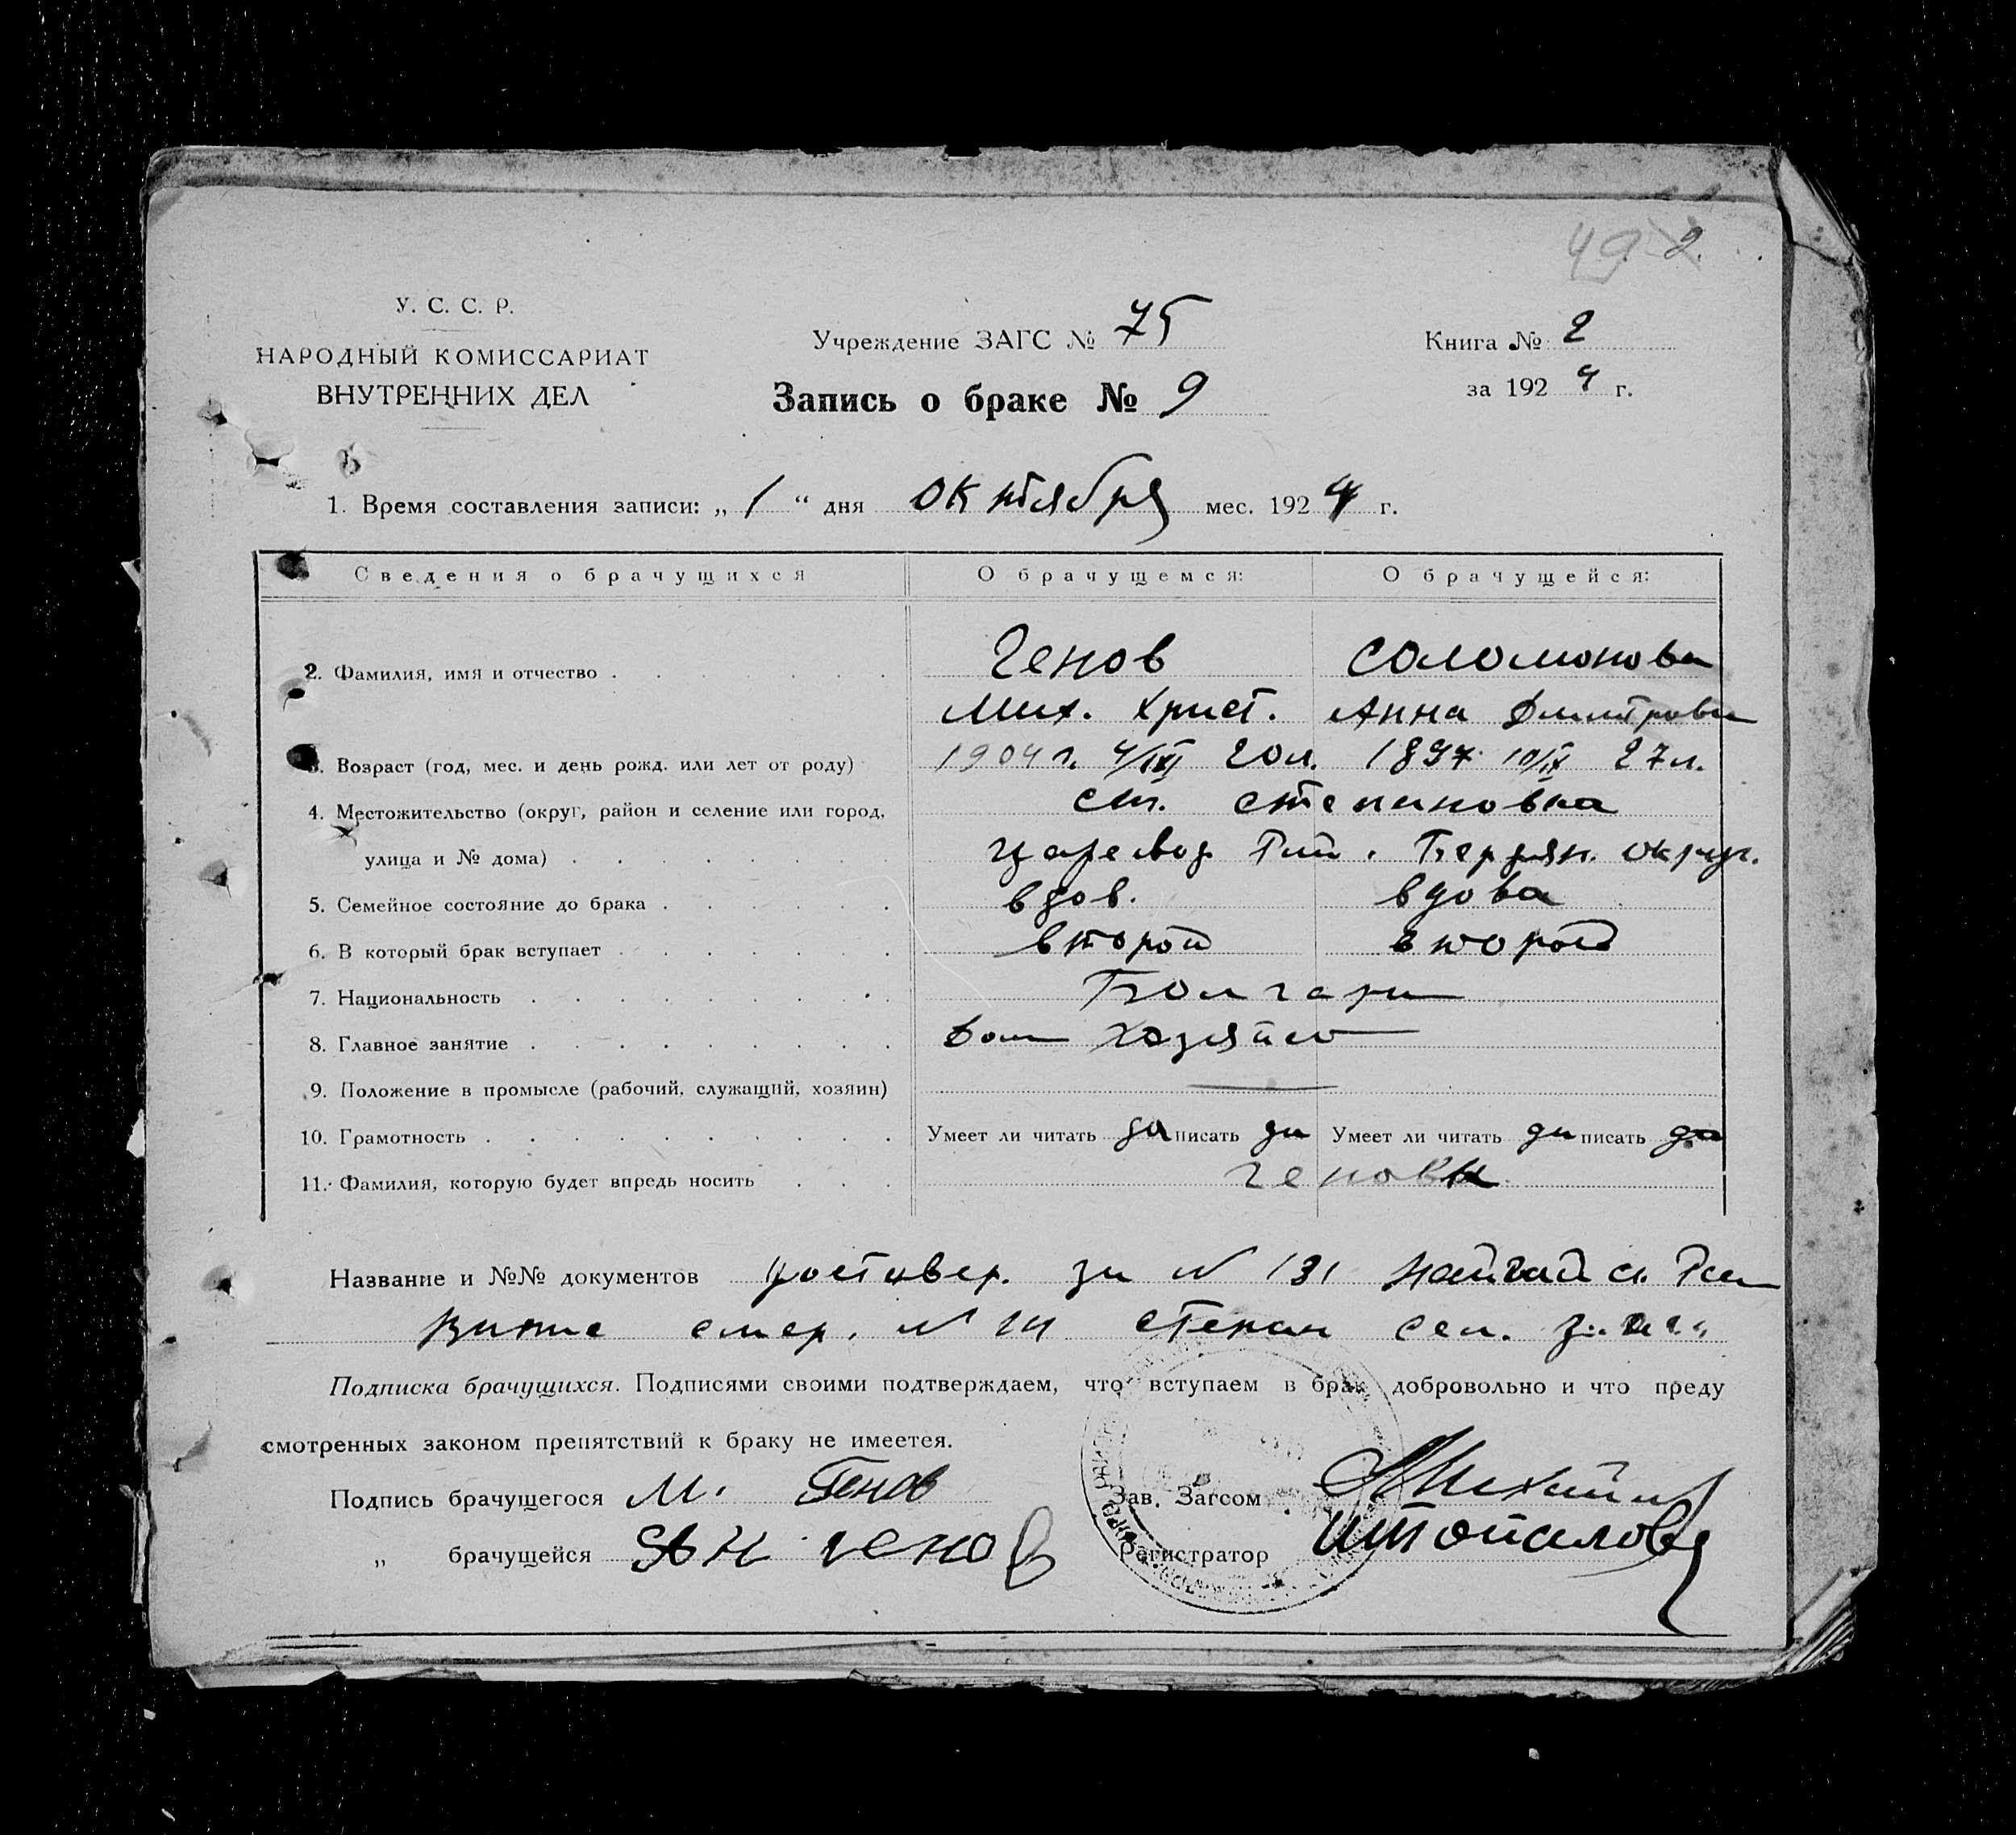 49 2.
У. С. С. Р.
НАРОДНЫЙ КОМИССАРИАТ
ВНУТРЕННИХ ДЕЛ
Учреждение ЗАГС № 75
Запись о браке № 9
Книга № 2
за 1924 г.
1. Время составления записи: „ 1 “ дня октября мес. 1924 г.
Сведения о брачущихся О брачущемся: О брачущейся:
2. Фамилия, имя и отчество Генов Соломонова
Мих. Христ. Анна Димитровн
3. Возраст (год, мес. и день рожд. или лет от роду) 1904 г. 20 л. 1897 10/IX 27 л.
4. Местожительство (округ, район и селение или город, Степановка
улица и № дома) Бердян. округ.
5. Семейное состояние до брака вдов. вдова
6. В который брак вступает второй второй
7. Национальность Болгары
8. Главное занятие Дом хозяйст
9. Положение в промысле (рабочий, служащий, хозяин)
10. Грамотность Умеет ли читать да писать да Умеет ли читать да писать да
11. Фамилия, которую будет впредь носить Геновы
Название и №№ документов удостовер. за N 131
смер. N Степан сел.
Подписка брачущихся. Подписями своими подтверждаем, что вступаем в брак добровольно и что преду
смотренных законом препятствий к браку не имеется.
Подпись брачущегося М. Генов Зав. Загсом
„ брачущейся Ан Генов Регистратор